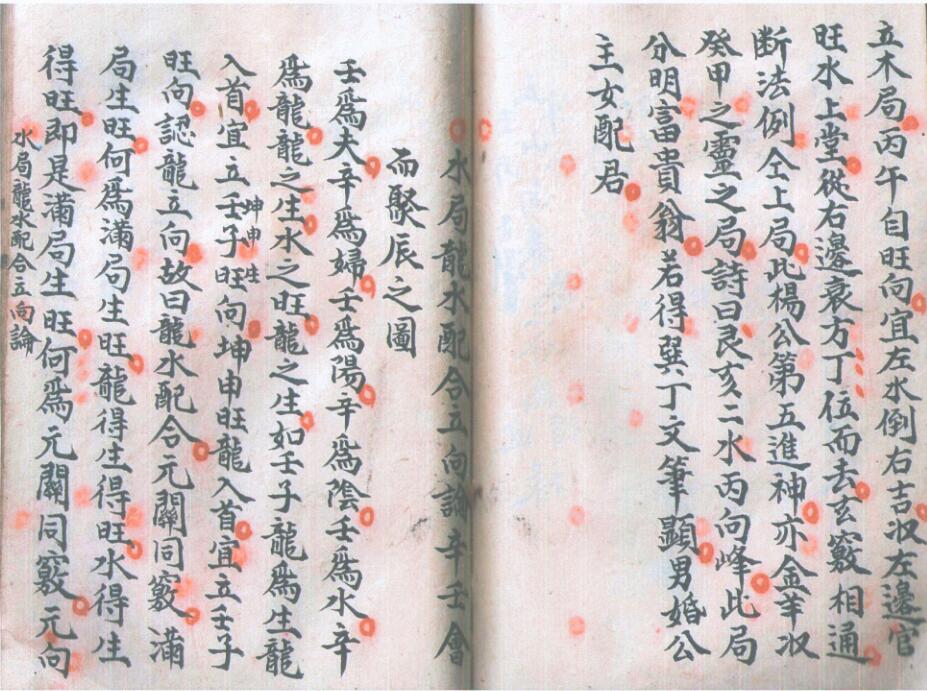 立木局丙午自旺向宜左水倒右吉収左邊官
旺水上堂從右邊衰方丁位而去玄竅相通
断法例仝上局此楊公第五進神亦金羊収
癸甲之靈之局詩曰艮亥二水丙向峰此局
分明富貴翁若得巽丁文筆顯男婚公
主女配君
水局龍水配合立向論辛壬會
而聚辰之圖
壬爲夫辛爲婦壬爲陽辛爲陰壬爲水辛
爲龍龍之生水之旺龍之生如壬子龍爲生龍
入首宜立壬子旺向坤申旺龍入首宜立壬子
坤申生
旺向認龍立向故曰龍水配合元關同竅滿
局生旺何爲滿局生旺龍得生得旺水得生
得旺即是滿局生旺何爲元關同竅元向
水局龍水配合立向論